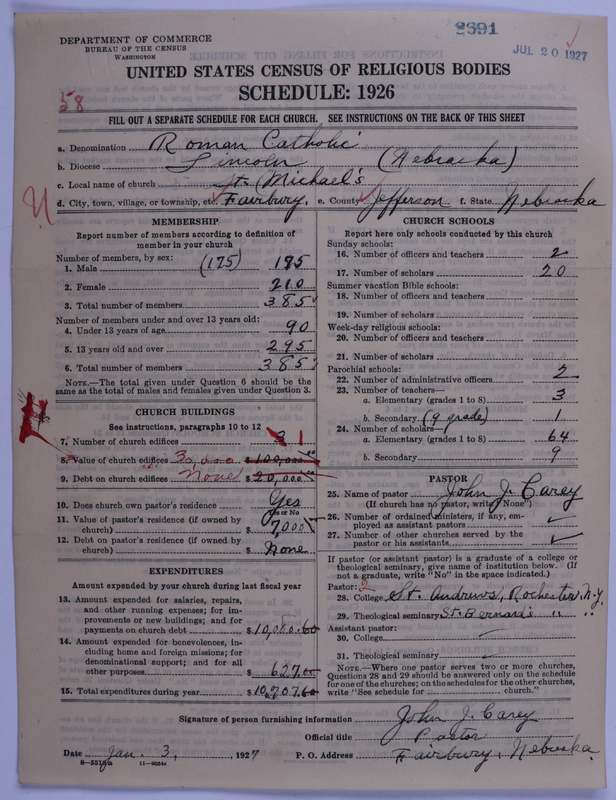 2691
JUL 20 1927
DEPARTMENT OF COMMERCE
BUREAU OF THE CENSUS
WASHINGTON
UNITED STATES CENSUS OF RELIGIOUS BODIES
SCHEDULE: 1926
58
FILL OUT A SEPARATE SCHEDULE FOR EACH CHURCH. SEE INSTRUCTIONS ON THE BACK OF THIS SHEET
a. Denomination Roman Catholic
b. Diocese Lincoln (Nebraska)
c. Local name of church St. Michael's
d. City, town, village, or township, etc. Fairbury, e. County Jefferson f. State Nebraska
MEMBERSHIP
Report number of members according to definition of
member in your church
Number of members, by sex:
1. Male (175) 175
2. Female 210
3. Total number of members 385
Number of members under and over 13 years old:
4. Under 13 years of age 90
5. 13 years old and over 295
6. Total number of members 385
NOTE.—The total given under Question 6 should be
same as the total of males and females given under Question 3.
CHURCH BUILDINGS
See instructions, paragraphs 10 to 12
7. Number of church edifices 3 1
8. Value of church edifices 30,000 $ 100,000
9. Debt on church edifices None $ 20,000
10. Does church own pastor's residence Yes
Yes or No
11. Value of pastor's residence (if owned by
church) $ 7,000
12. Debt on pastor's residence (if owned by
church) $ None
EXPENDITURES
Amount expended by your church during last fiscal year
13. Amount expended for salaries, repairs,
and other running expenses; for im-
provements or new buildings; and for
payments on church debt $ 10,080.60
14. Amount expended for benevolences, in-
cluding home and foreign missions; for
denominational support; and for all
other purposes $ 627.00
15. Total expenditures during year $ 10,707.60
CHURCH SCHOOLS
Report here only schools conducted by this church
Sunday schools:
16. Number of officers and teachers 2
17. Number of scholars 20
Summer vacation Bible schools:
18. Number of officers and teachers
19. Number of scholars
Week-day religious schools:
20. Number of officers and teachers
21. Number of scholars
Parochial schools:
22. Number of administrative officers 2
23. Number of teachers—
a. Elementary (grades 1 to 8) 3
b. Secondary (9 grade) 1
24. Number of scholars—
a. Elementary (grades 1 to 8) 64
b. Secondary 9
PASTOR
25. Name of pastor John J. Carey
(If church has no pastor, write "None")
26. Number of ordained ministers, if any, em-
ployed as assistant pastors
27. Number of other churches served by the
pastor or his assistants
If pastor (or assistant pastor) is a graduate of a college or
theological seminary, give name of institution below. (If
not a graduate, write "No" in the space indicated.)
Pastor: 2
28. College St. Andrews, Rochester, N.Y.
29. Theological seminary St. Bernard's " "
Assistant pastor:
30. College
31. Theological seminary
NOTE.—Where one pastor serves two or more churches,
Questions 28 and 29 should be answered only on the schedule
for one of the churches; on the schedules for the other churches,
write "See schedule for church."
Signature of person furnishing information John J. Carey
Official title Pastor
Date Jan. 3, 1927 P. O. Address Fairbury, Nebraska